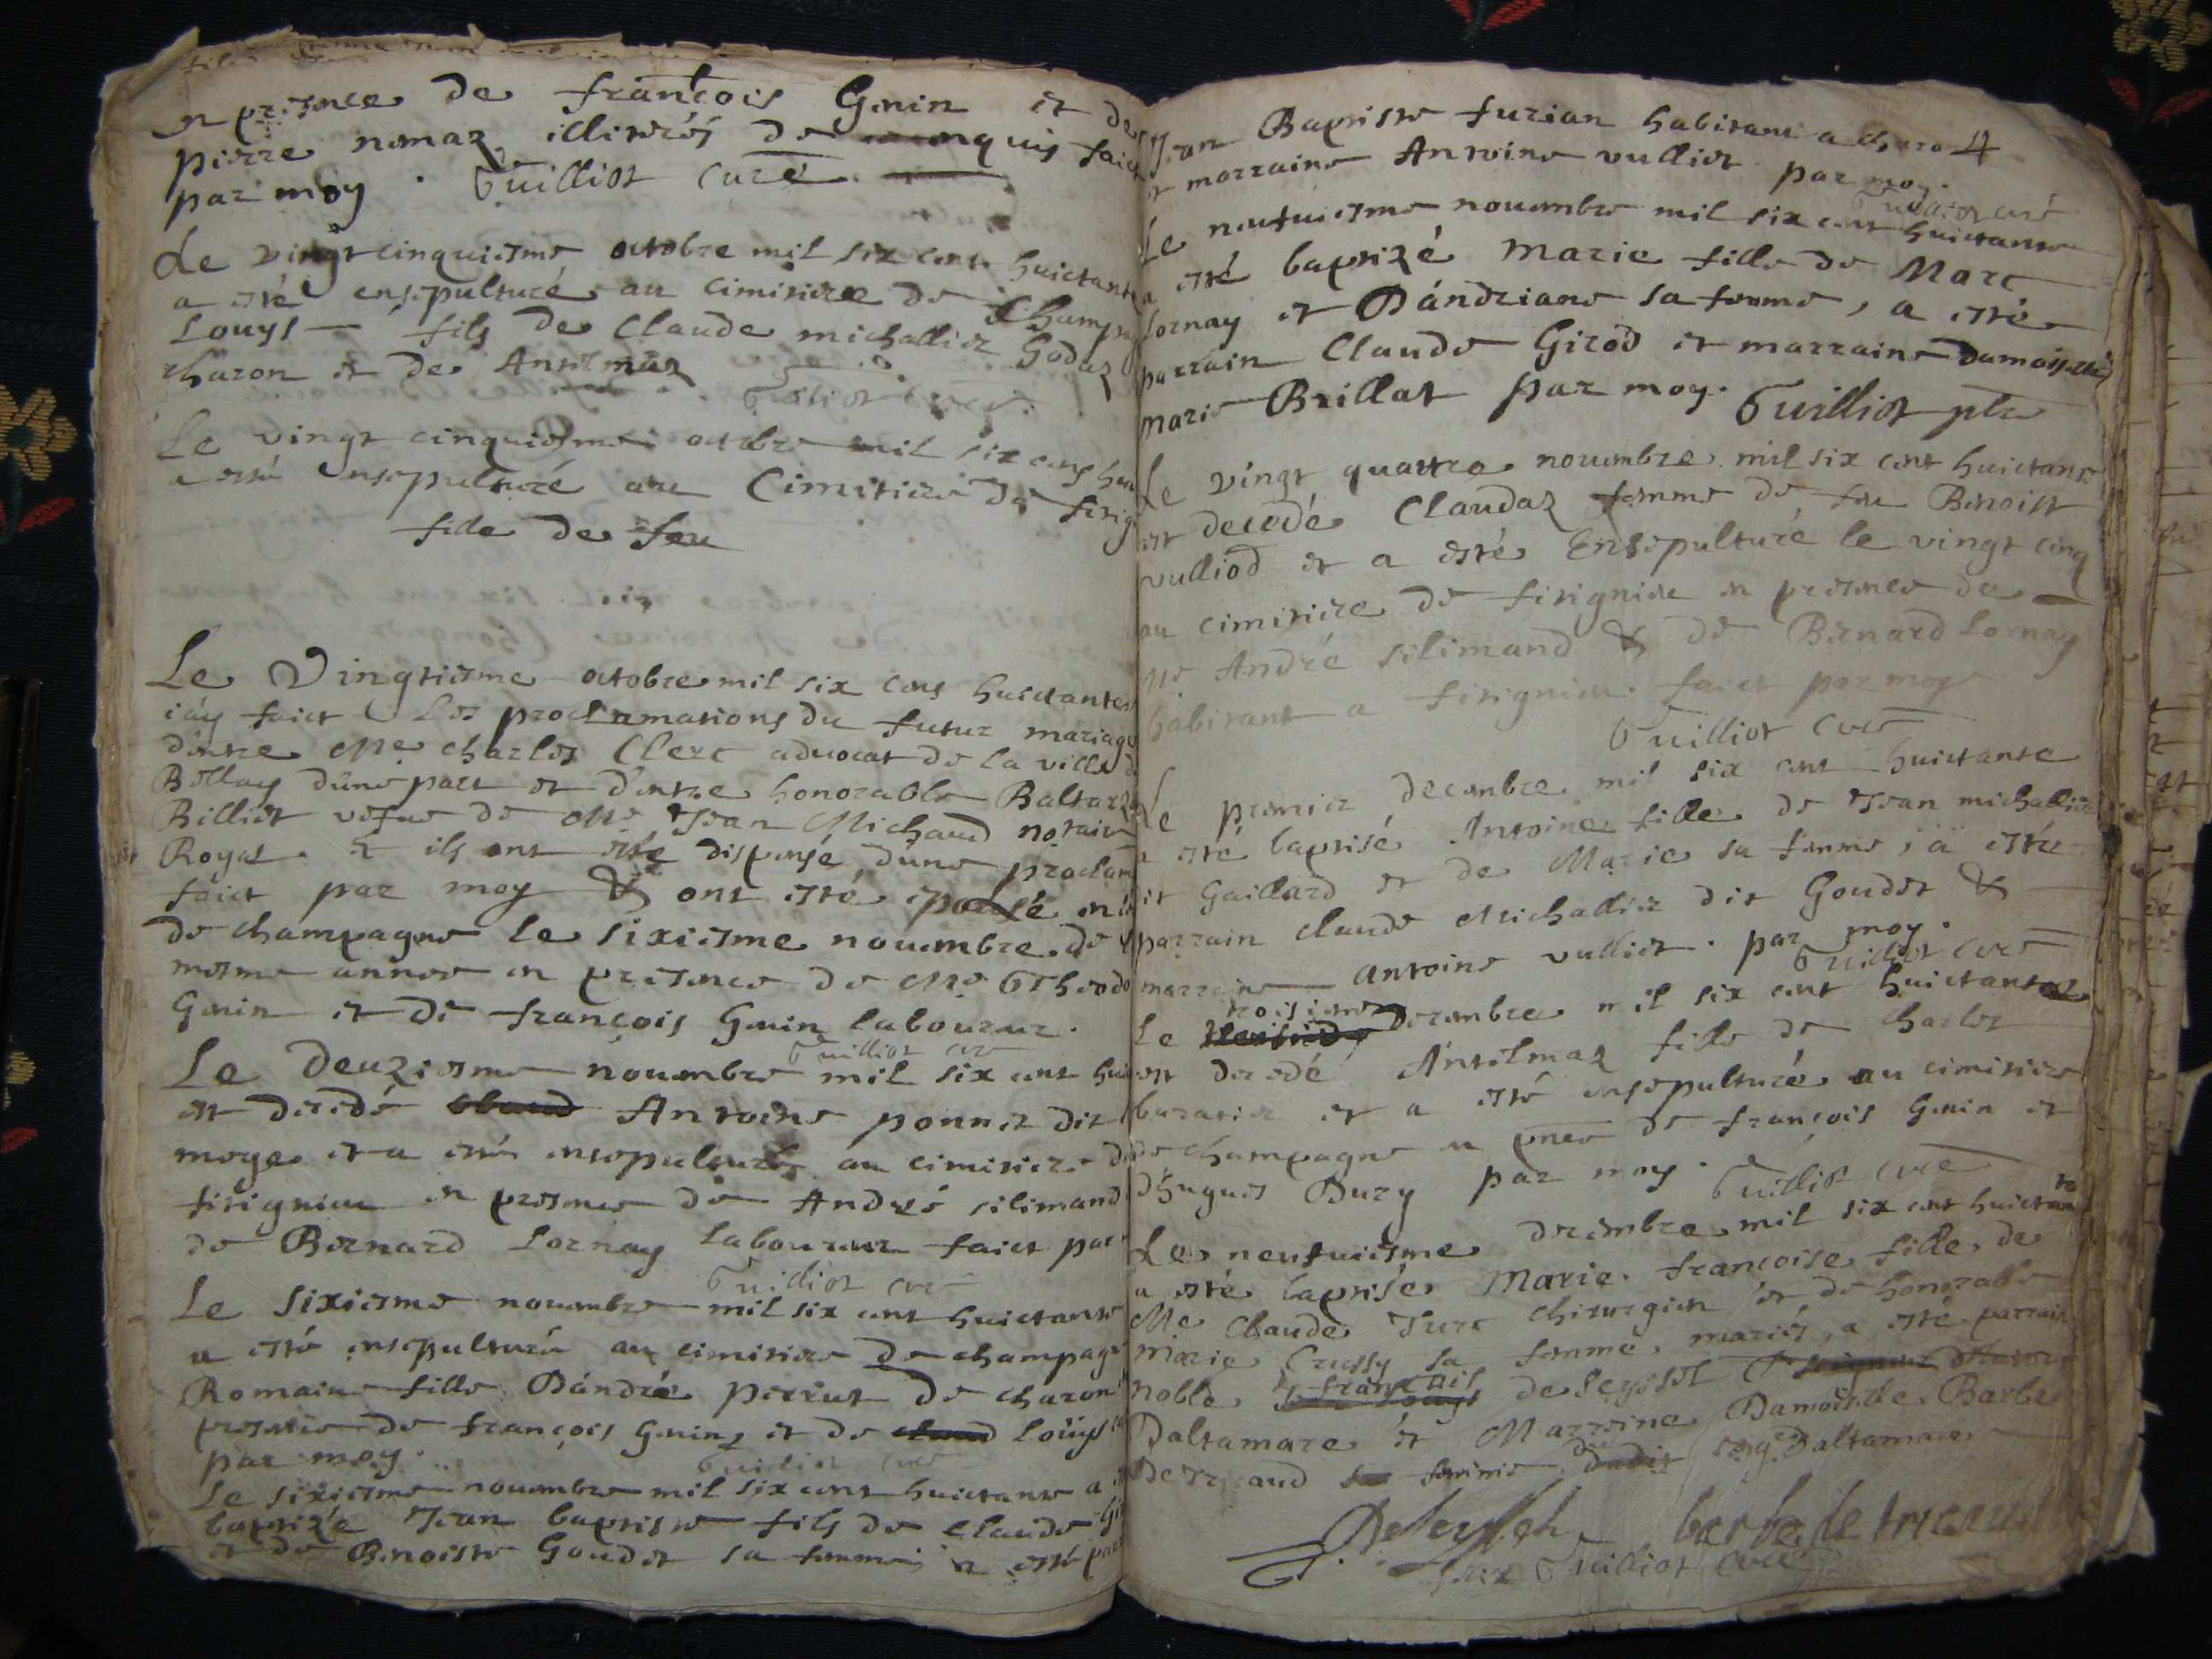 en presence de françois Genin et de
pierre nemaz illiterés de faict
par moy. Guilliot curé
Le vingt cinquiesme octobre mil six cens huictante
a esté ensepulturé au cimitiere de Champagne
Louys fils de Claude michallier Godaz
charon et de Antelmaz
Guilliot curé
Le vingt cinquiesme octobre mil six cens
a esté ensepulturé au Cimitiere de
fille de feu
Le Vingtiesme octobre mil six cens huictante
iáy faict Les proclamations du futur mariage
dentre Me charles Clerc advocat de la ville de
Bellay dúne part et d'entre honorable
Billiet vefue de Me Jean Michaud notaire
Royal. & ils ont esté dispensé dúne
faict par moy & ont esté epousé en
de champagne le sixiesme nouembre de
mesme annee en presence de Me
Genin et de françois Genin laboureur.
Guilliot curé
Le deuziesme nouembre mil six cent
est decedé Antoine ponnet dit
moge et a esté ensepulturé au cimitiere de
fitignieu en presence de André silimand
de Bernard Lornay Laboureur faict par
Guilliot curé
Le sixiesme nouembre mil six cent huictante
a esté ensepulturé au cimitiere de champagne
Romaine fille Dándré perrut de charon
presence de françois Genin et de Louys
par moy.
Guilliot curé
Le sixiesme nouembre mil six cent huictante a
baptizé Jean baptiste fils de Claude
et de Benoiste Goudet sa femme a esté
Jean Baptiste furian habitant a 4
et marraine Antoine vulliet par moy.
Guilliot curé
Le neufuiesme nouembre mil six cent huictante
a esté baptizé Marie fille de Marc
Lornay et Dándriane sa femme, a esté
parrain Claude Girod et marraine damoiselle
marie Brillat par moy. Guilliot ptre
Le vingt quattre nouembre mil six cent huictante
est decedé Claudaz femme de feu Benoist
vulliod et a esté Ensepulturé le vingt cinq
au cimitiere de fitignieu en presence de
Me André silimand & de Bernard Lornay
habitant a fitignieu. faict par moy
Guilliot curé
Le premier decembre mil six cent huictante
a esté baptisé Antoine fille de Jean michallier
dit Gaillard et de Marie sa femme, a esté
parrain claude Michallier dit Goudet &
marraine antoine vulliet. par moy.
Guilliot curé
troisiesme
Le decembre mil six cent huictante
est decedé Antelmaz fille de Charles
buratier et a esté ensepulturé au cimitiere
de champagne en pnce de françois Genin et
d'hugues Bury par moy.
Guilliot curé
Le neufuiesme decembre mil six cent huictante
a esté baptisé Marie françoise fille de
Me Claude Turc chirurgien et de honorable
Marie Crussy sa femme, mariés, a esté parrain
noble françois de Seyssel
Daltamare et Marreine Damoiselle Barbe
De Tricaud femme dudit seigr Daltamare
Deseyssel barbe de tricaud
Guilliot curé